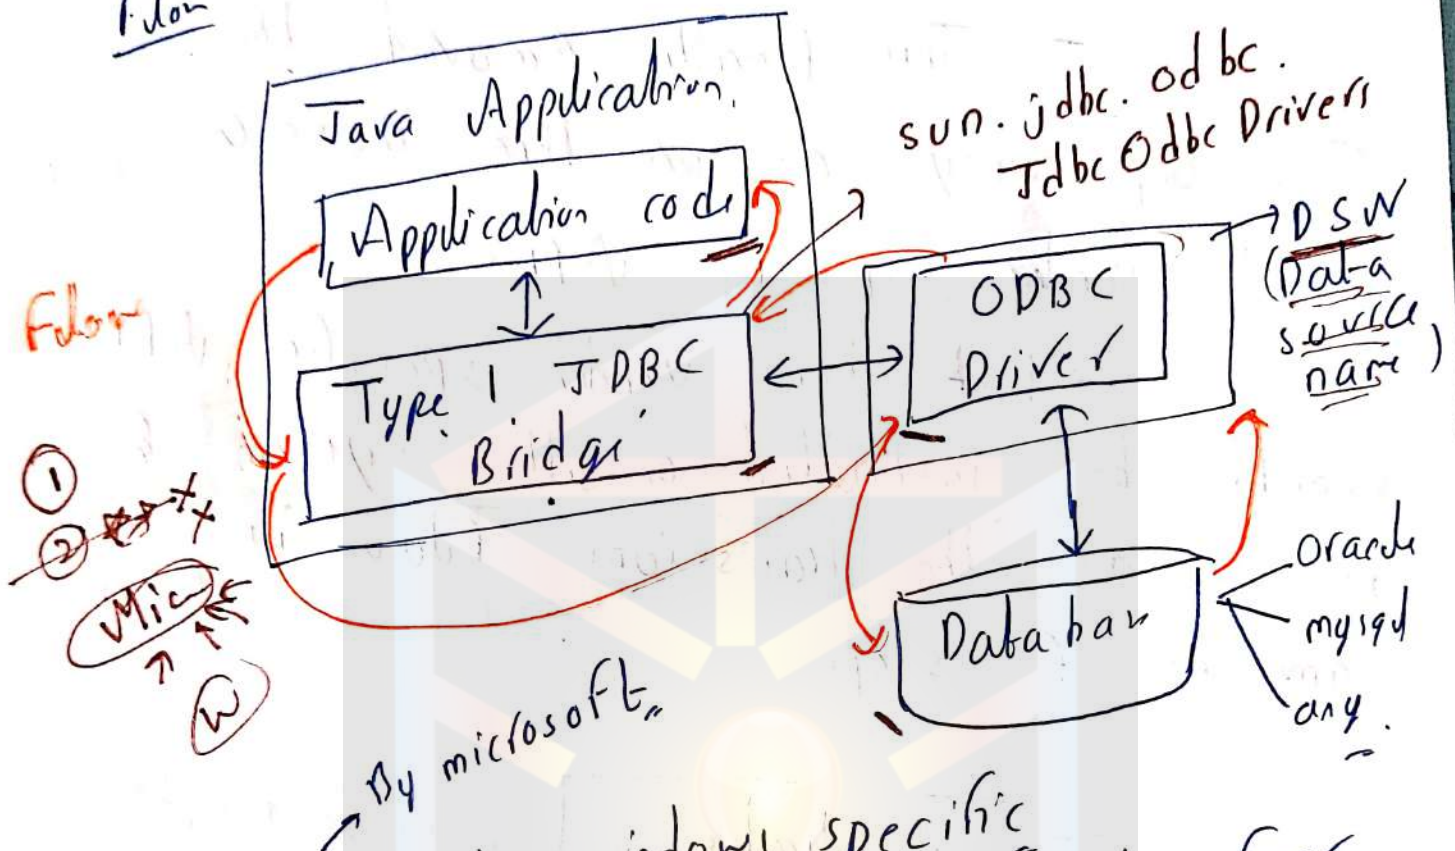 Flow
Java Application.
Application code
Type 1 JDBC
Bridge
sun.jdbc.odbc.
JdbcOdbcDrivers
ODBC
Driver
DSN
(Data
source
name)
Flow
1
2
Mic
W
Database
Oracle
mysql
any.
By microsoft
specific